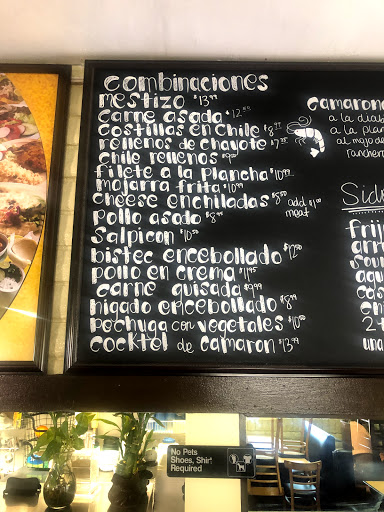 combinaciones
mestizo $13.99
carne asada $12.99
costillas en chile $8.99
rellenos de chayote $7.99
chile rellenos $9.00
filete a la plancha $10.99
mojarra frita $10.99
cheese enchiladas $8.50 add $1.00 meat
pollo asado $8.99
salpicon $10.50
bistec encebollado $12.50
pollo en crema $11.95
carne guisada $9.99
higado encebollado $8.99
pechuga con vegetales $10.50
cocktol de camaron $13.99
camaron
a la diab
a la plan
al mojo de
ranchero
Side
frij
arr
sou
agu
cos
en
2 t
una
No Pets
Shoes, Shirt
Required